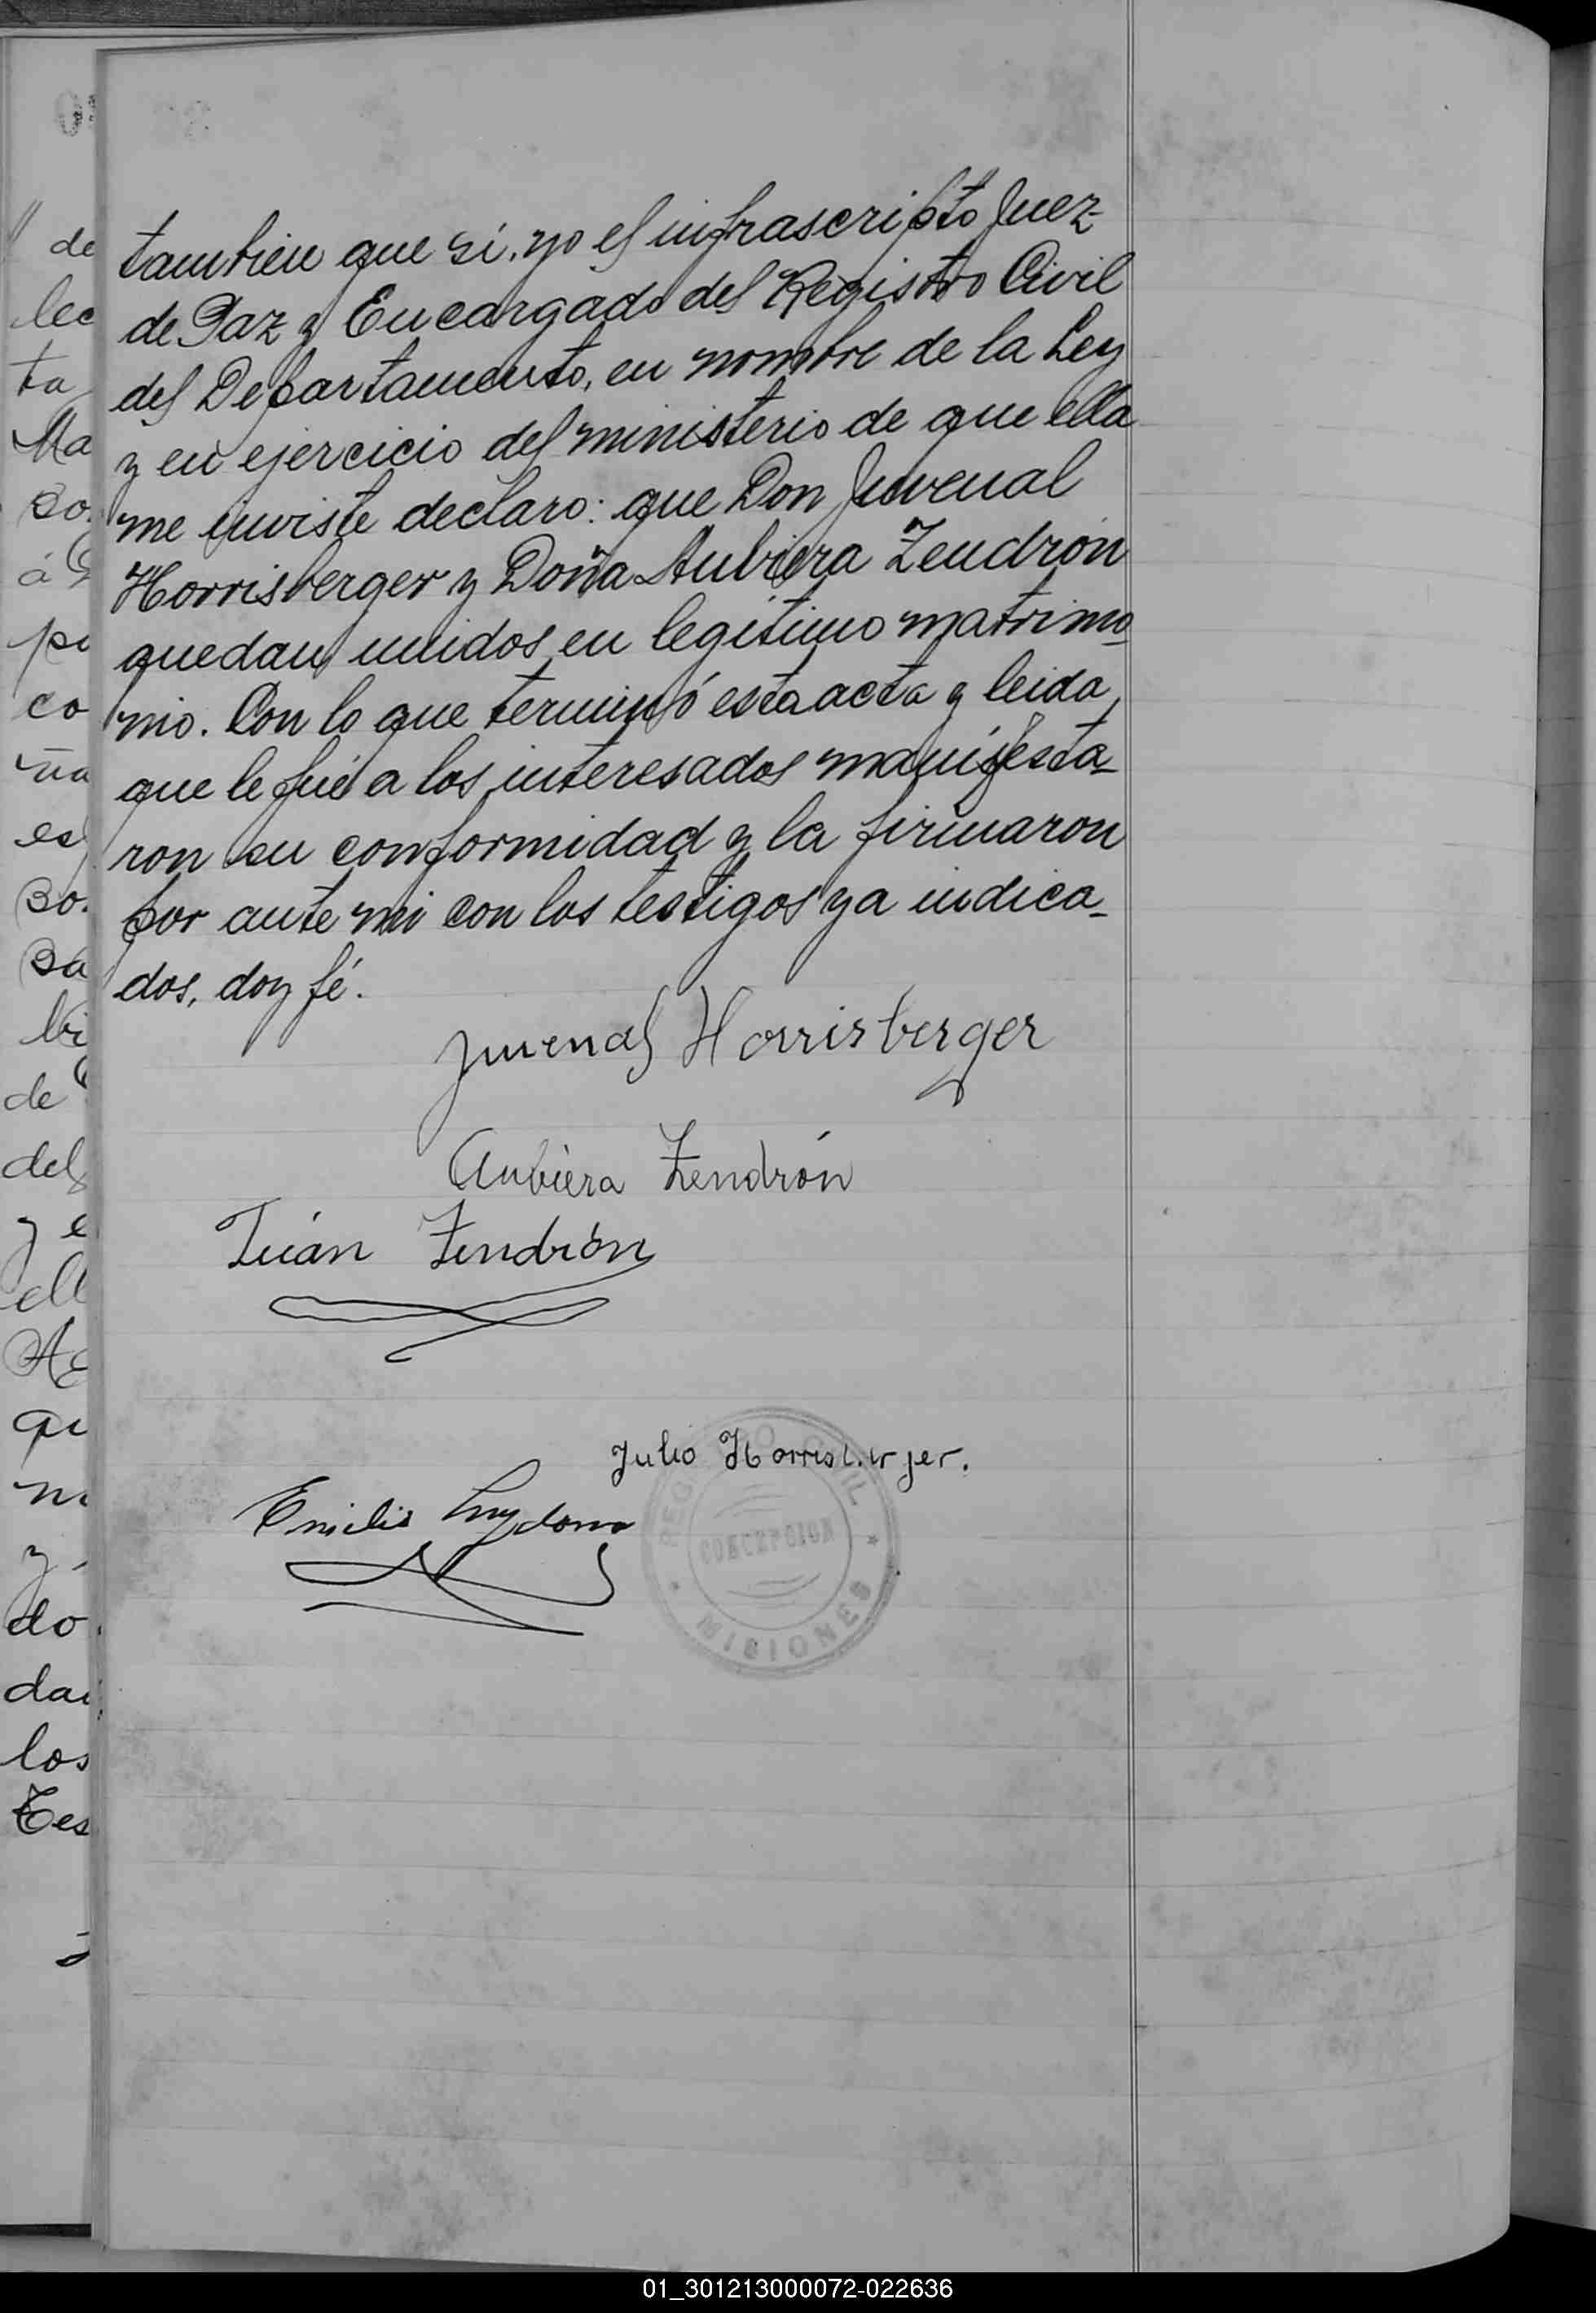 de
lec
ta
Ma
so
á
pi
co
ña
es
so.
sa
bi
de
del
y e
ell
Ac
qu
ni
y
do
dai
los
Tes
tambien que si. yo el infrascripto Juez
de Paz y Encargado del Registro Civil
del Departamento, en nombre de la Ley
y en ejercicio del ministerio de que ella
me inviste declaro: que Don Juvenal
Horrisberger y Doña Aubiera Zendrón
quedan unidos en legítimo matrimo-
nio. Con lo que terminó esta acta y leida
que le fué a los interesados manifesta-
ron su conformidad y la firmaron
por ante mi con los testigos ya indica-
dos, doy fé.
Juvenal Horrisberger
Aubiera Zendrón
Juán Zendrón
Julio Horrisberger.
Emilio
REGISTRO CIVIL
CONCEPCION
MISIONES
01_301213000072-022636